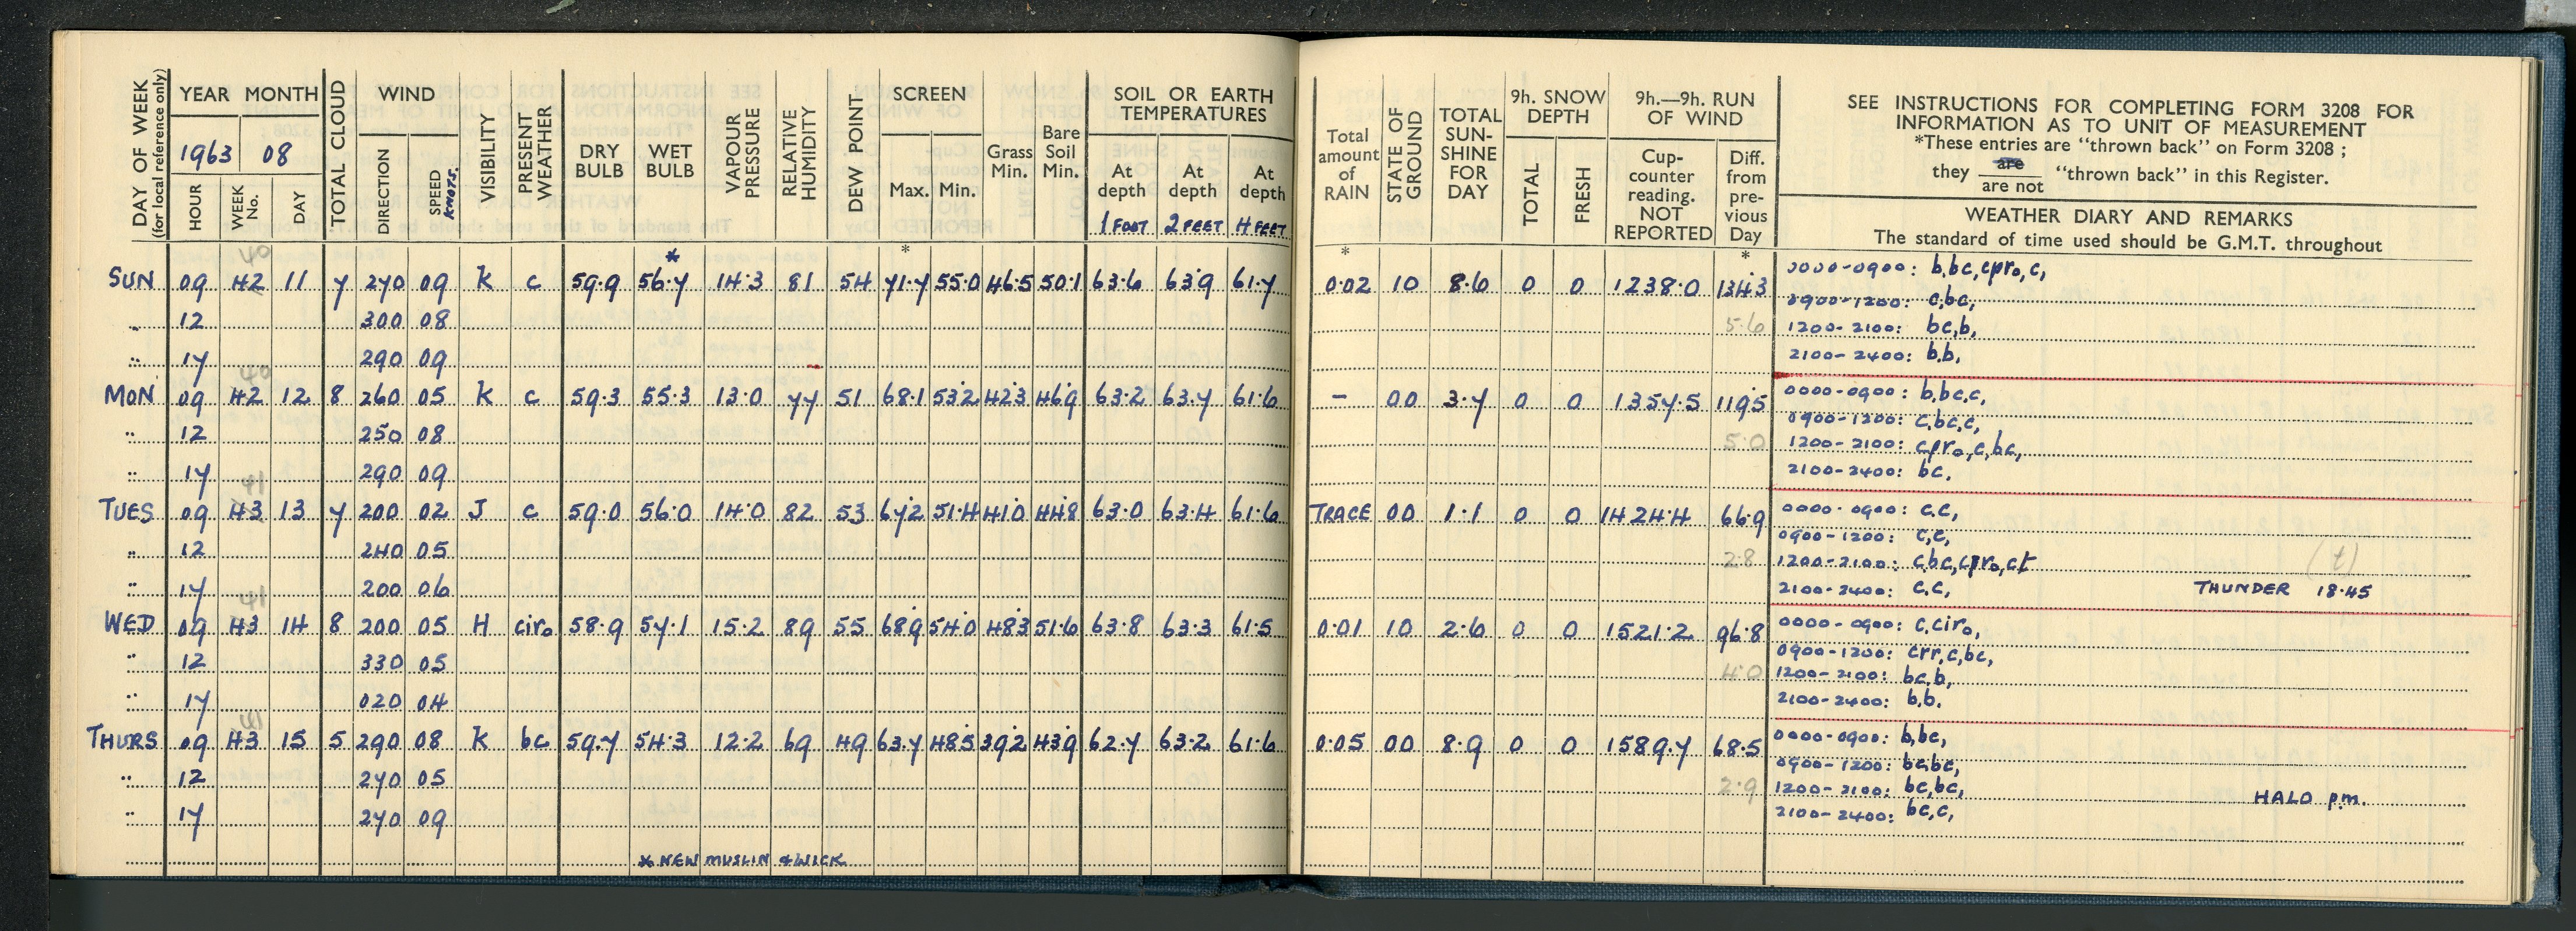 DAY OF WEEK (for local reference only) YEAR MONTH TOTAL CLOUD WIND VISIBILITY PRESENT WEATHER DRY BULB WET BULB VAPOUR PRESSURE RELATIVE HUMIDITY DEW POINT SCREEN Grass Min. Bare Soil Min. SOIL OR EARTH TEMPERATURES
1963 08
HOUR WEEK No. DAY DIRECTION SPEED KNOTS. Max. Min. At depth At depth At depth
1 FOOT 2 FEET 4 FEET
* *
40
SUN 09 42 11 7 270 09 K c 59.9 56.7 14.3 81 54 71.7 55.0 46.5 50.1 63.6 63.9 61.7
" 12 300 08
" 17 290 09
40
MON 09 42 12 8 260 05 K c 59.3 55.3 13.0 77 51 68.1 53.2 42.3 46.9 63.2 63.7 61.6
" 12 250 08
" 17 290 09
41
TUES 09 43 13 7 200 02 J c 59.0 56.0 14.0 82 53 67.2 51.4 41.0 44.8 63.0 63.4 61.6
" 12 240 05
" 17 200 06
41
WED 09 43 14 8 200 05 H ciro 58.9 57.1 15.2 89 55 68.9 54.0 48.3 51.6 63.8 63.3 61.5
" 12 330 05
" 17 020 04
41
THURS 09 43 15 5 290 08 K bc 59.7 54.3 12.2 69 49 63.7 48.5 39.2 43.9 62.7 63.2 61.6
" 12 270 05
" 17 270 09
* NEW MUSLIN & WICK
Total amount of RAIN STATE OF GROUND TOTAL SUN-SHINE FOR DAY 9h. SNOW DEPTH 9h.—9h. RUN OF WIND
TOTAL FRESH Cup-counter reading. NOT REPORTED Diff. from pre-vious Day
SEE INSTRUCTIONS FOR COMPLETING FORM 3208 FOR
INFORMATION AS TO UNIT OF MEASUREMENT
*These entries are "thrown back" on Form 3208 ;
they are / are not "thrown back" in this Register.
WEATHER DIARY AND REMARKS
The standard of time used should be G.M.T. throughout
* *
0.02 10 8.6 0 0 1238.0 134.3 0000-0900: b,bc,cpro,c,
0900-1200: c,bc,
5.6 1200-2100: bc,b,
2100-2400: b,b,
- 00 3.7 0 0 1357.5 119.5 0000-0900: b,bc,c,
0900-1200: c,bc,c,
5.0 1200-2100: cpro,c,bc,
2100-2400: bc.
TRACE 00 1.1 0 0 1424.4 66.9 0000-0900: c,c,
0900-1200: c,c,
2.8 1200-2100: cbc,cpro,ct (t)
2100-2400: c,c, THUNDER 18.45
0.01 10 2.6 0 0 1521.2 96.8 0000-0900: c,ciro,
0900-1200: crr,c,bc,
4.0 1200-2100: bc,b,
2100-2400: b,b.
0.05 00 8.9 0 0 1589.7 68.5 0000-0900: b,bc,
0900-1200: bc,bc,
2.9 1200-2100: bc,bc, HALO p.m.
2100-2400: bc,c,